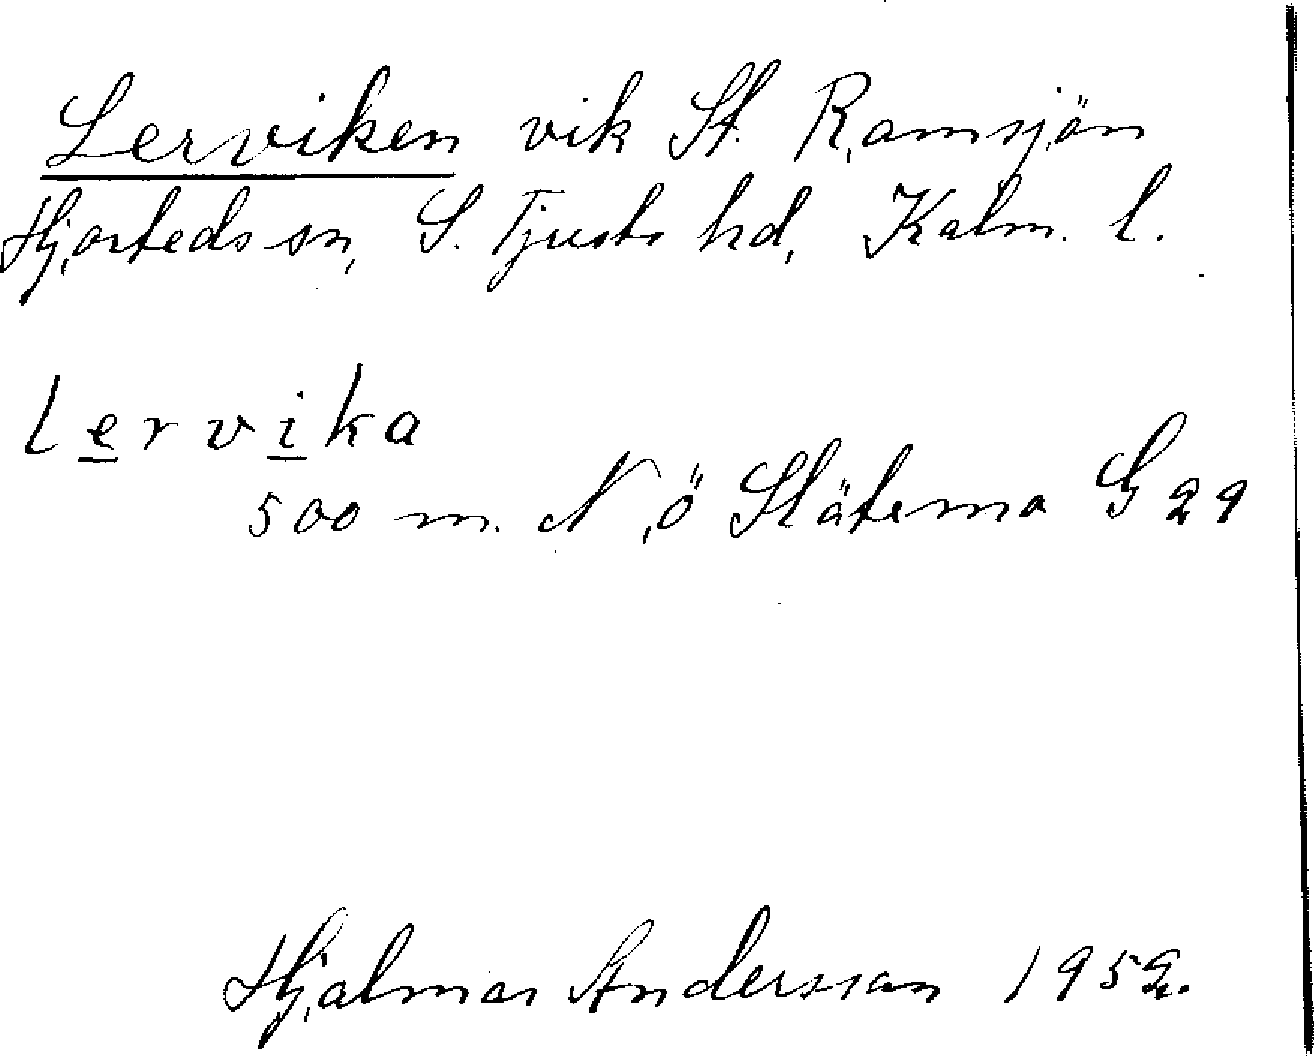 Lerviken vik St. Ramsjön
Hjorteds sn, S. Tjusts hd, Kalm. l.
lervika
500 m. N, ö Släterna G 29
Hjalmar Andersson 1952.